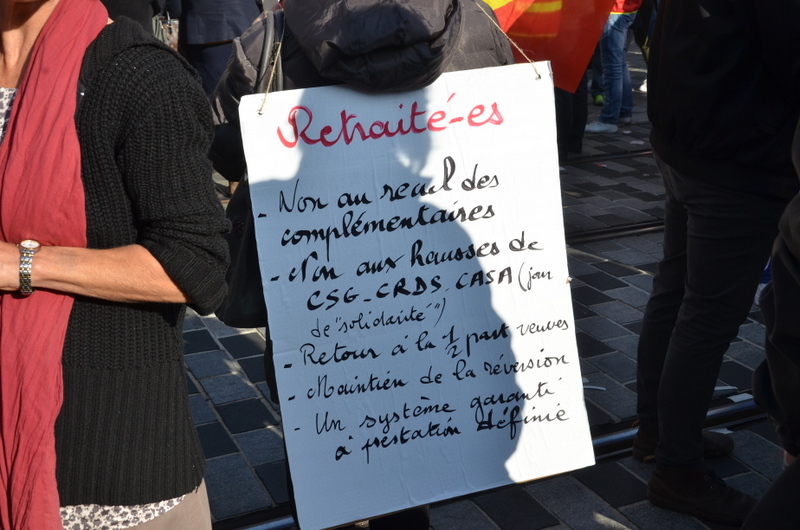 Retraité-es
- Non au recul des
complémentaires
- Non aux hausses de
CSG_CRDS_CASA (jour
de "solidarité")
- Retour à la 1/2 part veuves
- Maintien de la réversion
- Un système garanti
à prestation définie